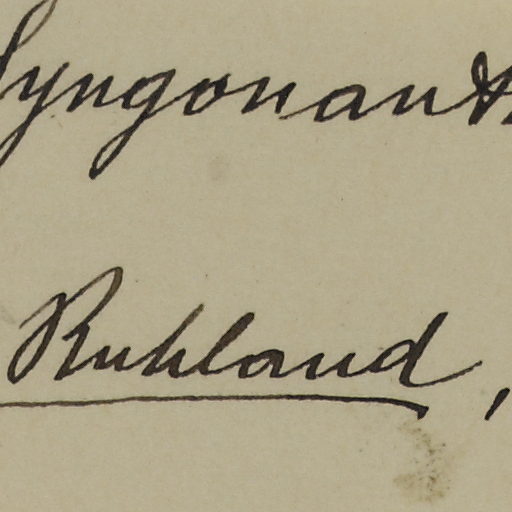 Syngonanth
Ruhland,